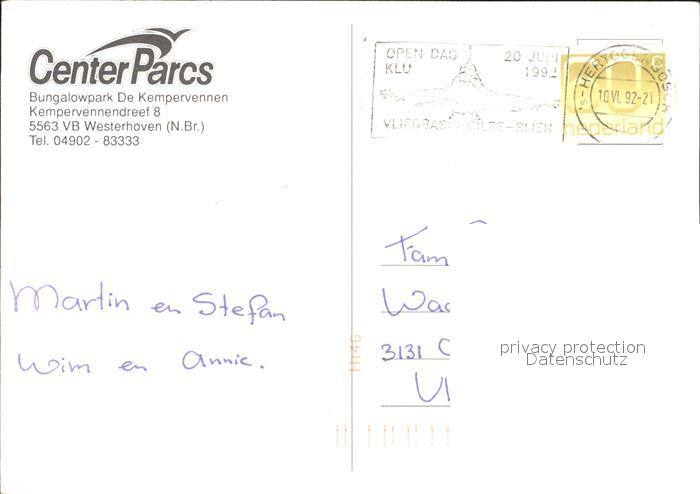 Center Parcs
Bungalowpark De Kempervennen
Kempervennendreef 8
5563 VB Westerhoven (N.Br.)
Tel. 04902 - 83333
OPEN DAG
KLU
20 JUNI
1992
VLIEGBASIS GILZE-RIJEN
's-HERTOGENBOSCH
10 VI. 92-21
nederland
Martin en Stefan
Wim en Annie.
Fam
3131 C
Ht46
privacy protection
Datenschutz